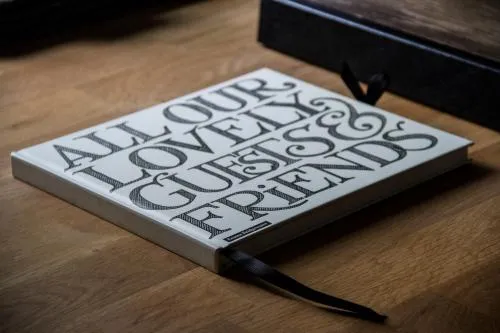 ALL OUR
LOVELY
GUESTS &
FRIENDS